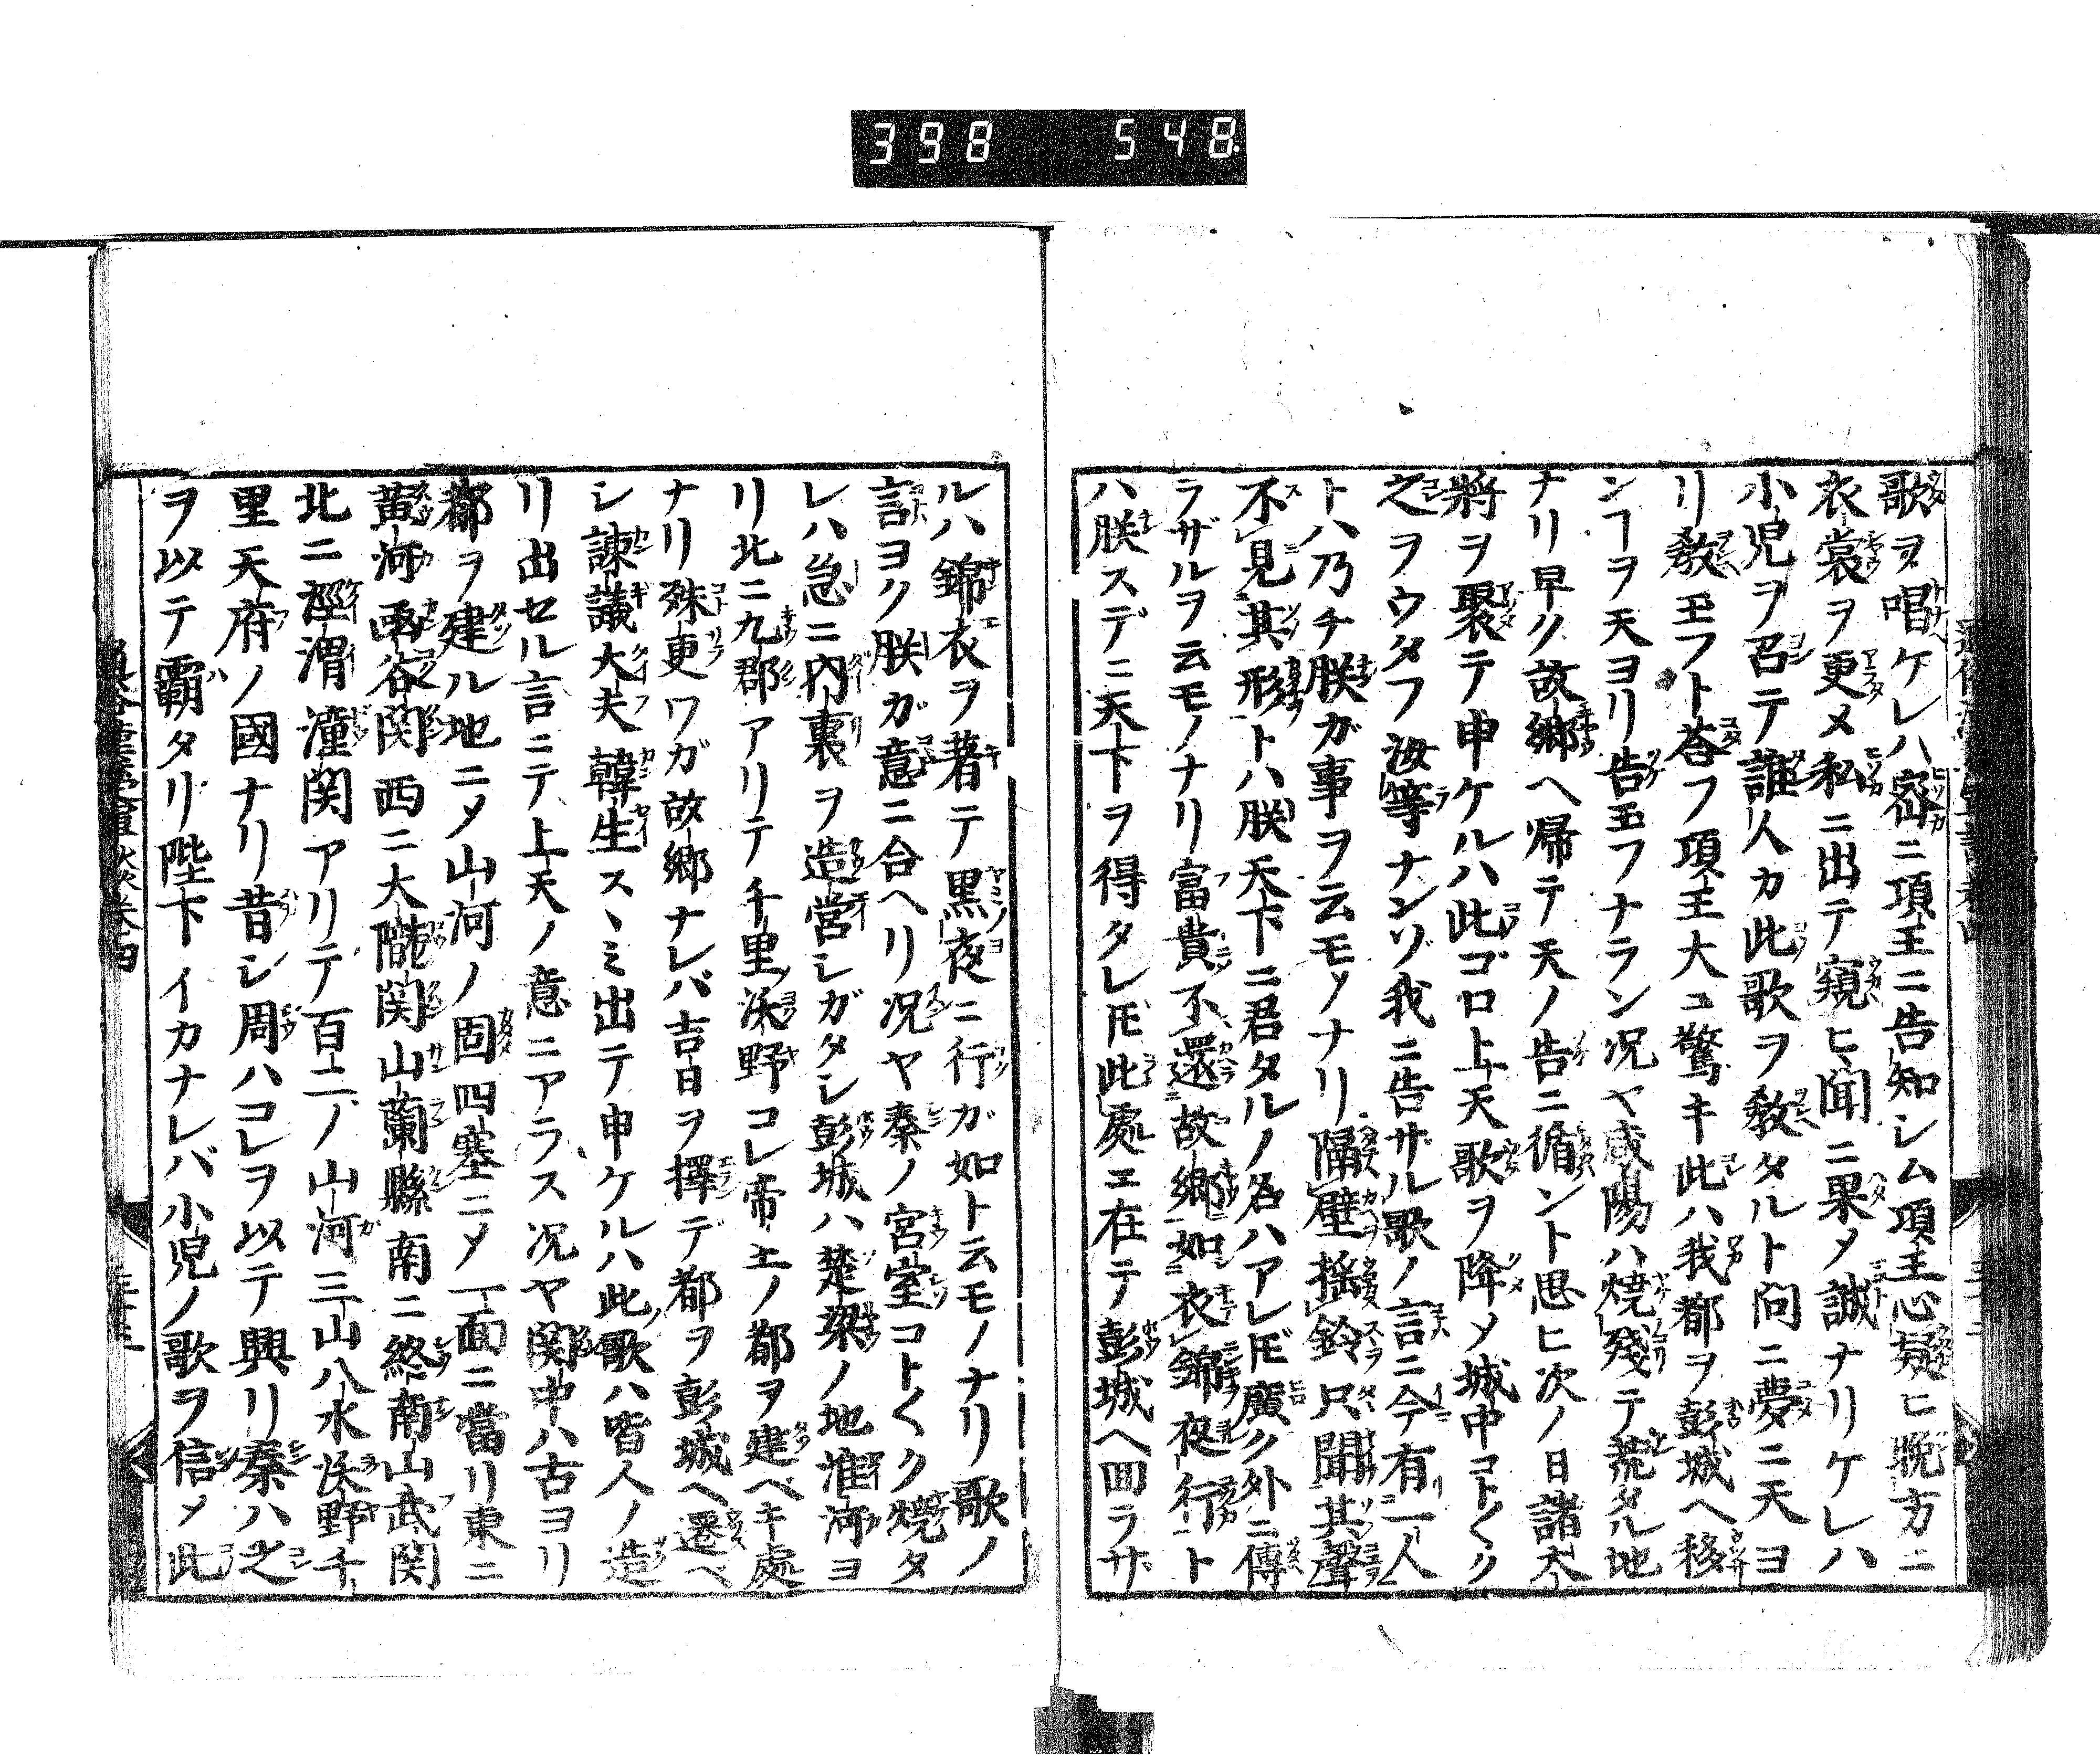 398 548
歌ヲ唱ケレハ密ニ項王ニ告知シム項王心疑ヒ晩方ニ
衣裳ヲ更メ私ニ出テ窺ヒ聞ニ果メ誠ナリケレハ
小児ヲ召テ誰人カ此歌ヲ教タルト問ニ夢ニ天ヨ
リ教玉フト荅フ項王大ユ驚キ此ハ我都ヲ彭城ヘ移
ンヿヲ天ヨリ告玉フナラン况ヤ咸陽ハ焼殘テ荒タル地
ナリ早ク故郷ヘ帰テ天ノ告ニ循ント思ヒ次ノ日諸大
將ヲ聚テ申ケルハ此ゴロ上天歌ヲ降メ城中コト〱ク
之ヲウタフ汝等ナンゾ我ニ告サル歌ノ言ニ今有一人
トハ乃チ朕ガ事ヲ云モノナリ隔壁揺鈴只聞其聲
不見其形トハ朕天下ニ君タルノ名ハアレ𪜈廣ク外ニ傳
ラザルヲ云モノナリ富貴不還故郷如衣錦夜行ト
ハ朕スデニ天下ヲ得タレ𪜈此處ニ在テ彭城ヘ回ラザ
ルハ錦衣ヲ著テ黒夜ニ行ガ如ト云モノナリ歌ノ
言ヨク朕ガ意ニ合ヘリ况ヤ秦ノ宮室コト〱ク燒タ
レハ急ニ内裏ヲ造営シガタシ彭城ハ楚梁ノ地淮河ヨ
リ北ニ九郡アリテ千里沃野コレ帝王ノ都ヲ建ベキ處
ナリ殊更ワガ故郷ナレバ吉日ヲ擇デ都ヲ彭城ヘ遷ベ
シ諫議大夫韓生スヽミ出テ申ケルハ此歌ハ皆人ノ造
リ出セル言ニテ上天ノ意ニアラス况ヤ関中ハ古ヨリ
都ヲ建ル地ニメ山河ノ固四塞ニメ一面ニ當リ東ニ
黄河函谷関西ニ大隴関山蘭縣南ニ終南山武関
北ニ涇渭潼関アリテ百二ノ山河三山八水沃野千
里天府ノ國ナリ昔シ周ハコレヲ以テ興リ秦ハ之
ヲ以テ覇タリ陛下イカナレバ小児ノ歌ヲ信メ此